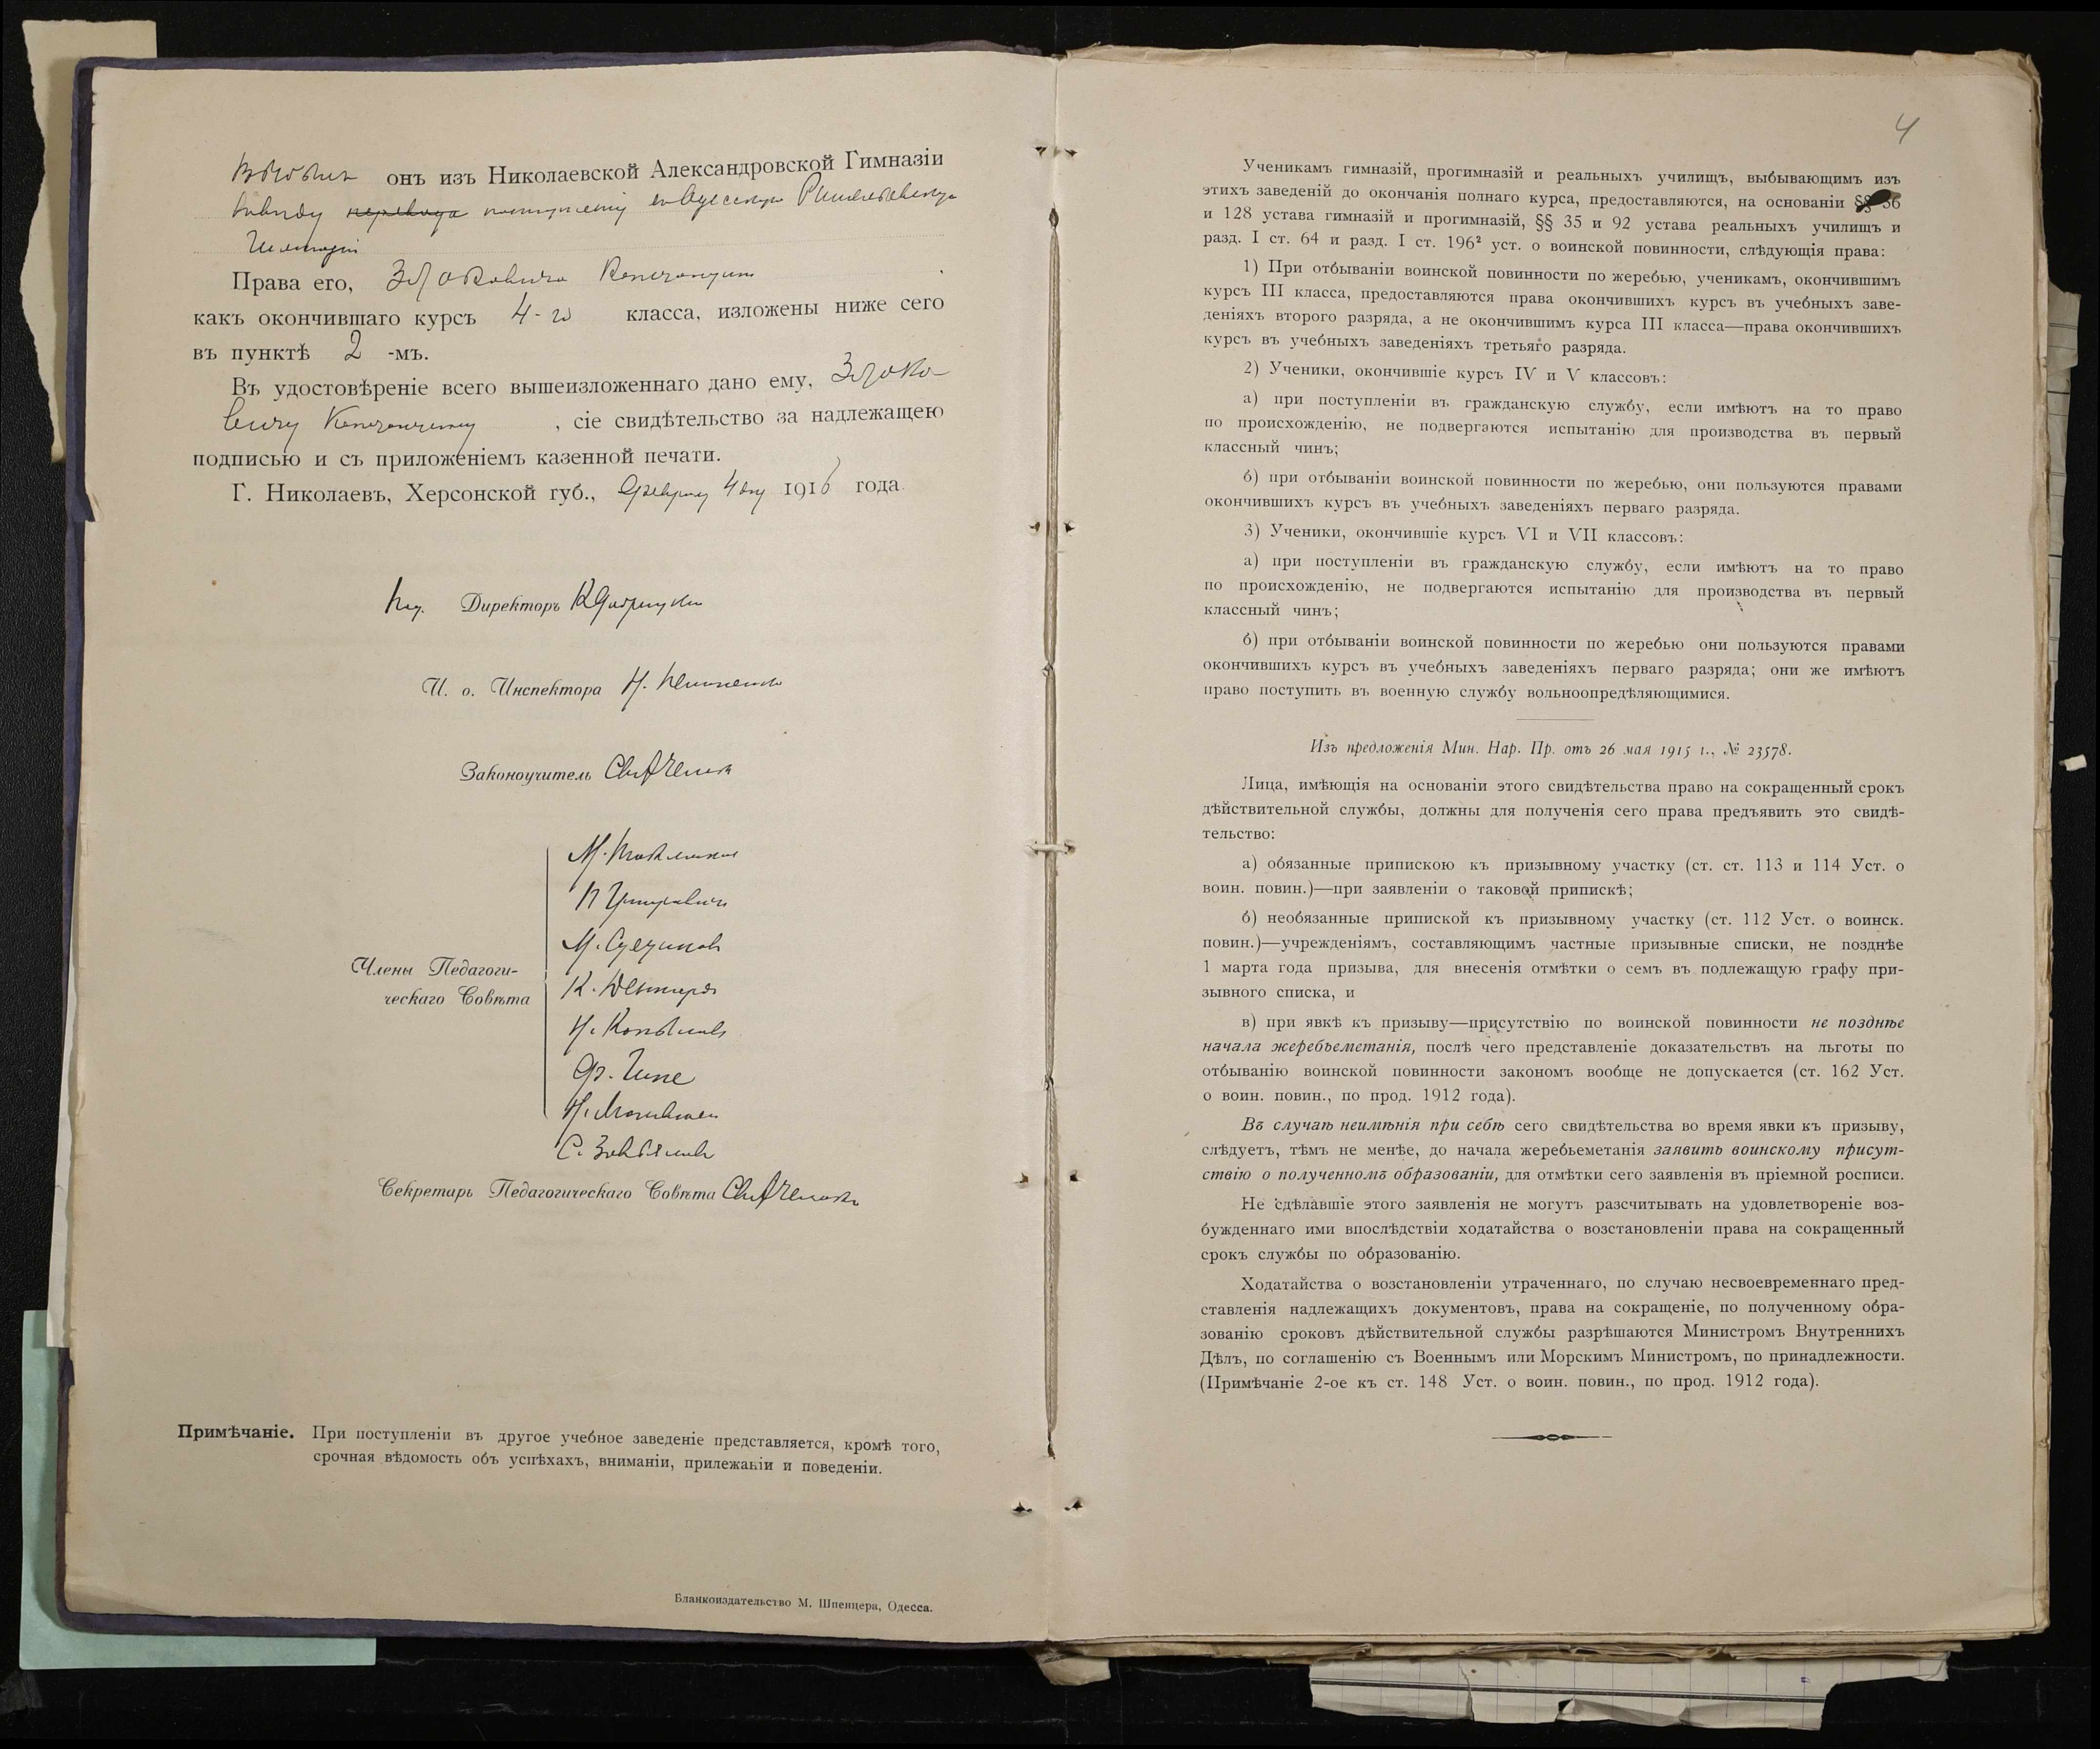 Выбылъ онъ изъ Николаевской Александровской Гимназіи
ввиду перевода поступленія въ Одесскую Ришельевскую
Гимназію
Права его,
какъ окончившаго курсъ 4-го класса, изложены ниже сего
въ пунктѣ 2 -мъ.
Въ удостовѣреніе всего вышеизложеннаго дано ему,
, сіе свидѣтельство за надлежащею
подписью и съ приложеніемъ казенной печати.
Г. Николаевъ, Херсонской губ., Февраля 4 дня 1916 года.
Директоръ
И. о. Инспектора Н.
Законоучитель
Члены Педагоги-
ческаго Совѣта
М.
П
М.
К.
Н.
Фр.
Н.
С.
Секретарь Педагогическаго Совѣта
Примѣчаніе. При поступленіи въ другое учебное заведеніе представляется, кромѣ того,
срочная вѣдомость объ успѣхахъ, вниманіи, прилежаніи и поведеніи.
Бланкоиздательство М. Шпенцера, Одесса.
4
Ученикамъ гимназій, прогимназій и реальныхъ училищъ, выбывающимъ изъ
этихъ заведеній до окончанія полнаго курса, предоставляются, на основаніи §§ 36
и 128 устава гимназій и прогимназій, §§ 35 и 92 устава реальныхъ училищъ и
разд. I ст. 64 и разд. I ст. 196² уст. о воинской повинности, слѣдующія права:
1) При отбываніи воинской повинности по жеребью, ученикамъ, окончившимъ
курсъ III класса, предоставляются права окончившихъ курсъ въ учебныхъ заве-
деніяхъ второго разряда, а не окончившимъ курса III класса—права окончившихъ
курсъ въ учебныхъ заведеніяхъ третьяго разряда.
2) Ученики, окончившіе курсъ IV и V классовъ:
а) при поступленіи въ гражданскую службу, если имѣютъ на то право
по происхожденію, не подвергаются испытанію для производства въ первый
классный чинъ;
б) при отбываніи воинской повинности по жеребью, они пользуются правами
окончившихъ курсъ въ учебныхъ заведеніяхъ перваго разряда.
3) Ученики, окончившіе курсъ VI и VII классовъ:
а) при поступленіи въ гражданскую службу, если имѣютъ на то право
по происхожденію, не подвергаются испытанію для производства въ первый
классный чинъ;
б) при отбываніи воинской повинности по жеребью они пользуются правами
окончившихъ курсъ въ учебныхъ заведеніяхъ перваго разряда; они же имѣютъ
право поступить въ военную службу вольноопредѣляющимися.
Изъ предложенія Мин. Нар. Пр. отъ 26 мая 1915 г., № 23578.
Лица, имѣющія на основаніи этого свидѣтельства право на сокращенный срокъ
дѣйствительной службы, должны для полученія сего права предъявить это свидѣ-
тельство:
а) обязанные припискою къ призывному участку (ст. ст. 113 и 114 Уст. о
воин. повин.)—при заявленіи о таковой припискѣ;
б) необязанные припиской къ призывному участку (ст. 112 Уст. о воинск.
повин.)—учрежденіямъ, составляющимъ частные призывные списки, не позднѣе
1 марта года призыва, для внесенія отмѣтки о семъ въ подлежащую графу при-
зывного списка, и
в) при явкѣ къ призыву—присутствію по воинской повинности не позднѣе
начала жеребьеметанія, послѣ чего представленіе доказательствъ на льготы по
отбыванію воинской повинности закономъ вообще не допускается (ст. 162 Уст.
о воин. повин., по прод. 1912 года).
Въ случаѣ неимѣнія при себѣ сего свидѣтельства во время явки къ призыву,
слѣдуетъ, тѣмъ не менѣе, до начала жеребьеметанія заявить воинскому присут-
ствію о полученномъ образованіи, для отмѣтки сего заявленія въ пріемной росписи.
Не сдѣлавшіе этого заявленія не могутъ разсчитывать на удовлетвореніе воз-
бужденнаго ими впослѣдствіи ходатайства о возстановленіи права на сокращенный
срокъ службы по образованію.
Ходатайства о возстановленіи утраченнаго, по случаю несвоевременнаго пред-
ставленія надлежащихъ документовъ, права на сокращеніе, по полученному обра-
зованію сроковъ дѣйствительной службы разрѣшаются Министромъ Внутреннихъ
Дѣлъ, по соглашенію съ Военнымъ или Морскимъ Министромъ, по принадлежности.
(Примѣчаніе 2-ое къ ст. 148 Уст. о воин. повин., по прод. 1912 года).